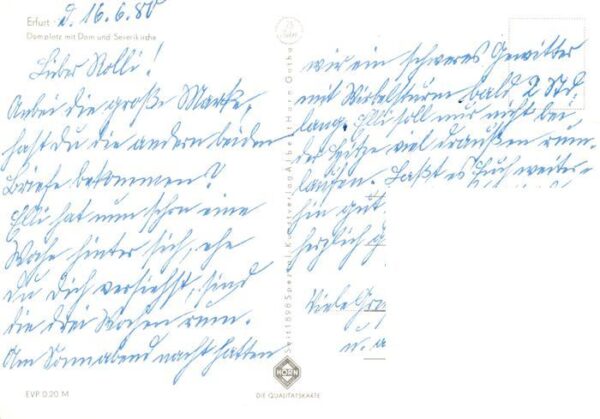 Erfurt
d. 16.6.80
Domplatz mit Dom und Severikirche
Lieber Rolli!
Anbei die große Marke,
hast du die andern beiden
Briefe bekommen?
Elli hat nun schon eine
Woche hinter sich, ehe
du dich versiehst, sind
die drei Wochen rum.
Am Sonnabend nacht hatten
wir ein schweres Gewitter
mit Wirbelsturm bald 2 Std.
lang. Elli soll nur nicht bei
der Hitze viel draußen rum-
laufen. Laßt es Euch weiter-
hin gut
herzlich g
Viele Gr
u. a
Seit 1898 Spezial-Kunstverlag Albert Horn Gotha
HORN
EVP 0,20 M
DIE QUALITÄTSKARTE